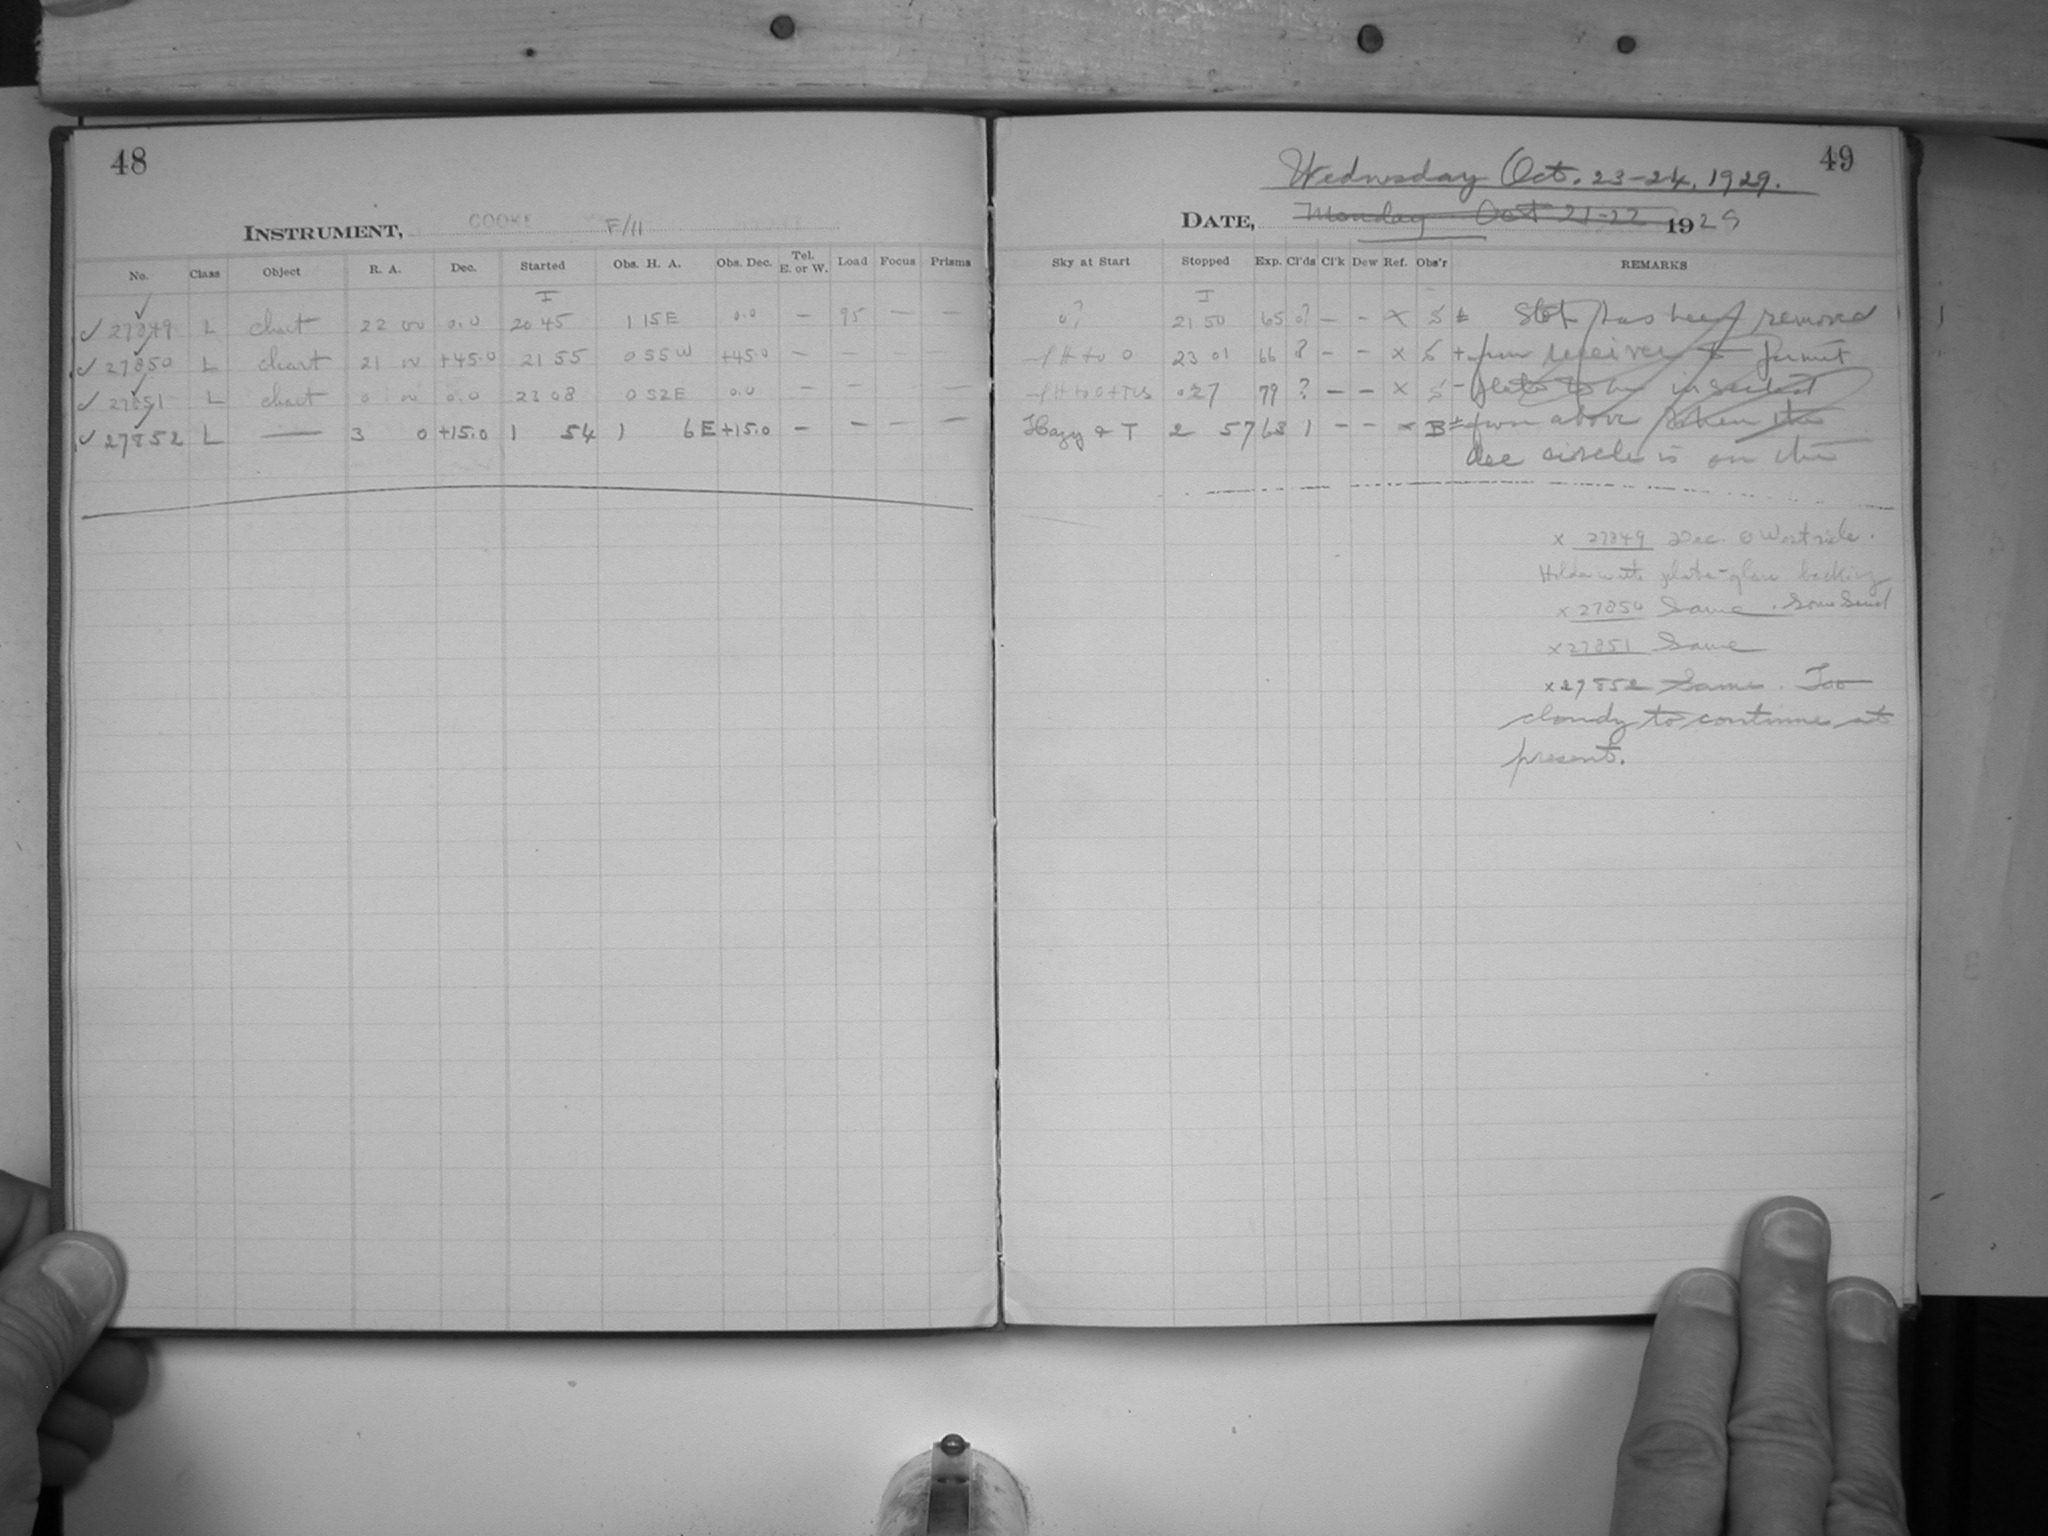 48
INSTRUMENT, COOKE F/11
No. Class Object R. A. Dec. Started Obs. H. A. Obs. Dec. Tel. E. or W. Load Focus Prisms
I
✓ 27849 L chart 22 00 0.0 20 45 1 15 E 0.0 — 95 — —
✓ 27850 L chart 21 00 +45.0 21 55 0 55 W +45.0 — — — —
✓ 27851 L chart 0 00 0.0 23 08 0 52 E 0.0 — — — —
✓ 27852 L — 3 0 +15.0 1 54 1 6 E +15.0 — — — —
49
Wednesday Oct. 23-24, 1929.
DATE, Monday Oct 21-22 1929
Sky at Start Stopped Exp. Cl'ds Cl'k Dew Ref. Obs'r REMARKS
I
0? 21 50 65 0? — — × S ± Stop has been removed
23 01 66 ? — — × S + from receiver to permit
0 27 79 ? — — × S – plate to be inserted
Hazy & T 2 57 63 1 — — × B ± from above when the
dec circle is on the
× 27849 Dec. West side.
Holder with plate-glass backing
× 27850 Same. Some
× 27851 Same
× 27852 Same. Too
cloudy to continue at
present.